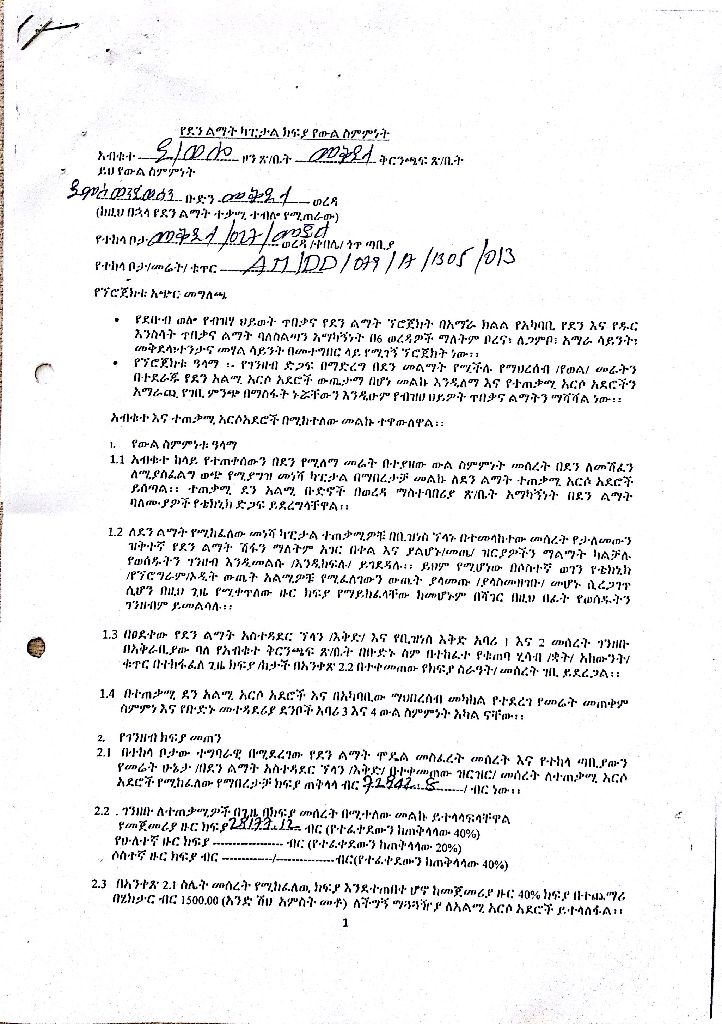 የደን ልማት ካፒታል ክፍያ የውል ስምምነት
አብቁተ ደ/ወሎ ዞን ጽ/ቤት መቅደላ ቅርንጫፍ ጽ/ቤት
ይህ የውል ስምምነት
ቡድን መቅደላ ወረዳ
(ከዚህ በኋላ የደን ልማት ተቃሚ ተብሎ የሚጠራው)
የተከላ ቦታ መቅደላ /027/ ወረዳ /ቀበሌ/ ጎጥ ጣቢያ
የተከላ ቦታ/መሬት/ ቁጥር AM/DD/079/A/1305/013
የፕሮጀክቱ አጭር መግለጫ
• የደቡብ ወሎ የብዝሃ ህይወት ጥበቃና የደን ልማት ፕሮጀክት በአማራ ክልል የአካባቢ የደን እና የዱር
እንስሳት ጥበቃና ልማት ባለስልጣን አማካኝነት በ6 ወረዳዎች ማለትም ቦረና፣ ለጋምቦ፣ አማራ ሳይንት፣
መቅደላ፣ተንታና መሃል ሳይንት በመተግበር ላይ የሚገኝ ፕሮጀክት ነው፡፡
• የፕሮጀክቱ ዓላማ ፡- የገንዘብ ድጋፍ በማድረግ በደን መልማት የሚችሉ የማህበረሰብ /የወል/ መሬትን
በተደራጁ የደን አልሚ አርሶ አደሮች ውጤታማ በሆነ መልኩ እንዲለማ እና የተጠቃሚ አርሶ አደሮችን
አማራጪ የገቢ ምንጭ በማስፋት ኑሯቸውን እንዲሁም የብዝሃ ህይዎት ጥበቃና ልማትን ማሻሻል ነው፡፡
አብቁተ እና ተጠቃሚ አርሶአደሮች በሚከተለው መልኩ ተዋውለዋል፡፡
1. የውል ስምምነቱ ዓላማ
1.1 አብቁተ ከላይ የተጠቀሰውን በደን የሚለማ መሬት በተያዘው ውል ስምምነት መሰረት በደን ለመሸፈን
ለሚያስፈልግ ወጭ የሚያግዝ መነሻ ካፒታል በማበረታቻ መልኩ ለደን ልማት ተጠቃሚ አርሶ አደሮች
ይሰጣል፡፡ ተጠቃሚ ደን አልሚ ቡድኖች በወረዳ ማስተባበሪያ ጽ/ቤት አማካኝነት በደን ልማት
ባለሙያዎች የቴክኒክ ድጋፍ ይደረግላቸዋል፡፡
1.2 ለደን ልማት የሚከፈለው መነሻ ካፒታል ተጠቃሚዎቹ በቢዝነስ ፕላኑ በተመላከተው መሰረት የታለመውን
ዝቅተኛ የደን ልማት ሽፋን ማለትም አዝር በቀል እና ያልሆኑ/መጤ/ ዝርያዎችን ማልማት ካልቻሉ
የወሰዱትን ገንዘብ እንዲመልሱ /እንዲከፍሉ/ ይገደዳሉ፡፡ ይህም የሚሆነው በሶስተኛ ወገን የቴክኒክ
/የፕሮግራም/ኦዲት ውጤት አልሚዎቹ የሚፈለገውን ውጤት ያላመጡ /ያላስመዘገቡ/ መሆኑ ሲረጋገጥ
ሲሆን በዚህ ጊዜ የሚቀጥለው ዙር ክፍያ የማይከፈላቸው ከመሆኑም በሻገር በዚህ በፊት የወሰዱትን
ገንዘብም ይመልሳሉ፡፡
1.3 በፀደቀው የደን ልማት አስተዳደር ፕላን /እቅድ/ እና የቢዝነስ እቅድ አባሪ 1 እና 2 መሰረት ገንዘቡ
በአቅራቢያው ባለ የአብቁተ ቅርንጫፍ ጽ/ቤት በቡድኑ ስም በተከፈተ የቁጠባ ሂሳብ /ቋት/ አካውንት/
ቁጥር በተከፋፈለ ጊዜ ክፍያ /ከታች በአንቀጽ 2.2 በተቀመጠው የክፍያ ስራዓት/ መሰረት ገቢ ይደረጋል፡፡
1.4 በተጠቃሚ ደን አልሚ አርሶ አደሮች እና በአካባቢው ማህበረሰብ መካከል የተደረገ የመሬት መጠቀም
ስምምነ እና የቡድኑ መተዳደሪያ ደንቦች አባሪ 3 እና 4 ውል ስምምነት አካል ናቸው፡፡
2. የገንዘብ ክፍያ መጠን
2.1 በተከላ ቦታው ተግባራዊ በሚደረገው የደን ልማት ሞዴል መስፈረት መሰረት እና የተከላ ጣቢያውን
የመሬት ሁኔታ /በደን ልማት አስተዳደር ፕላን /እቅድ/ በተቀመጠው ዝርዝር/ መሰረት ለተጠቃሚ አርሶ
አደሮች የሚከፈለው የማበረታቻ ክፍያ ጠቅላላ ብር 72942.8 / ብር ነው፡፡
2.2 . ገንዘቡ ለተጠቃሚዎች በጊዜ በክፍያ መሰረት በሚተለው መልኩ ይተላለፍላቸዋል
የመጀመሪያ ዙር ክፍያ 28177.12 ብር (የተፈቀደውን ከጠቅላላው 40%)
የሁለተኛ ዙር ክፍያ ------------------ ብር (የተፈቀደውን ከጠቅላላው 20%)
ሶስተኛ ዙር ክፍያ ብር ------------/---------------ብር(የተፈቀደውን ከጠቅላላው 40%)
2.3 በአንቀጽ 2.1 ስሌት መሰረት የሚከፈለዉ ክፍያ እንደተጠበቀ ሆኖ ከመጀመሪያ ዙር 40% ክፍያ በተጨማሪ
በሄክታር ብር 1500.00 (አንድ ሽህ አምስት መቶ) ለችግኝ ማጓጓዥያ ለአልሚ አርሶ አደሮች ይተላለፋል፡፡
1